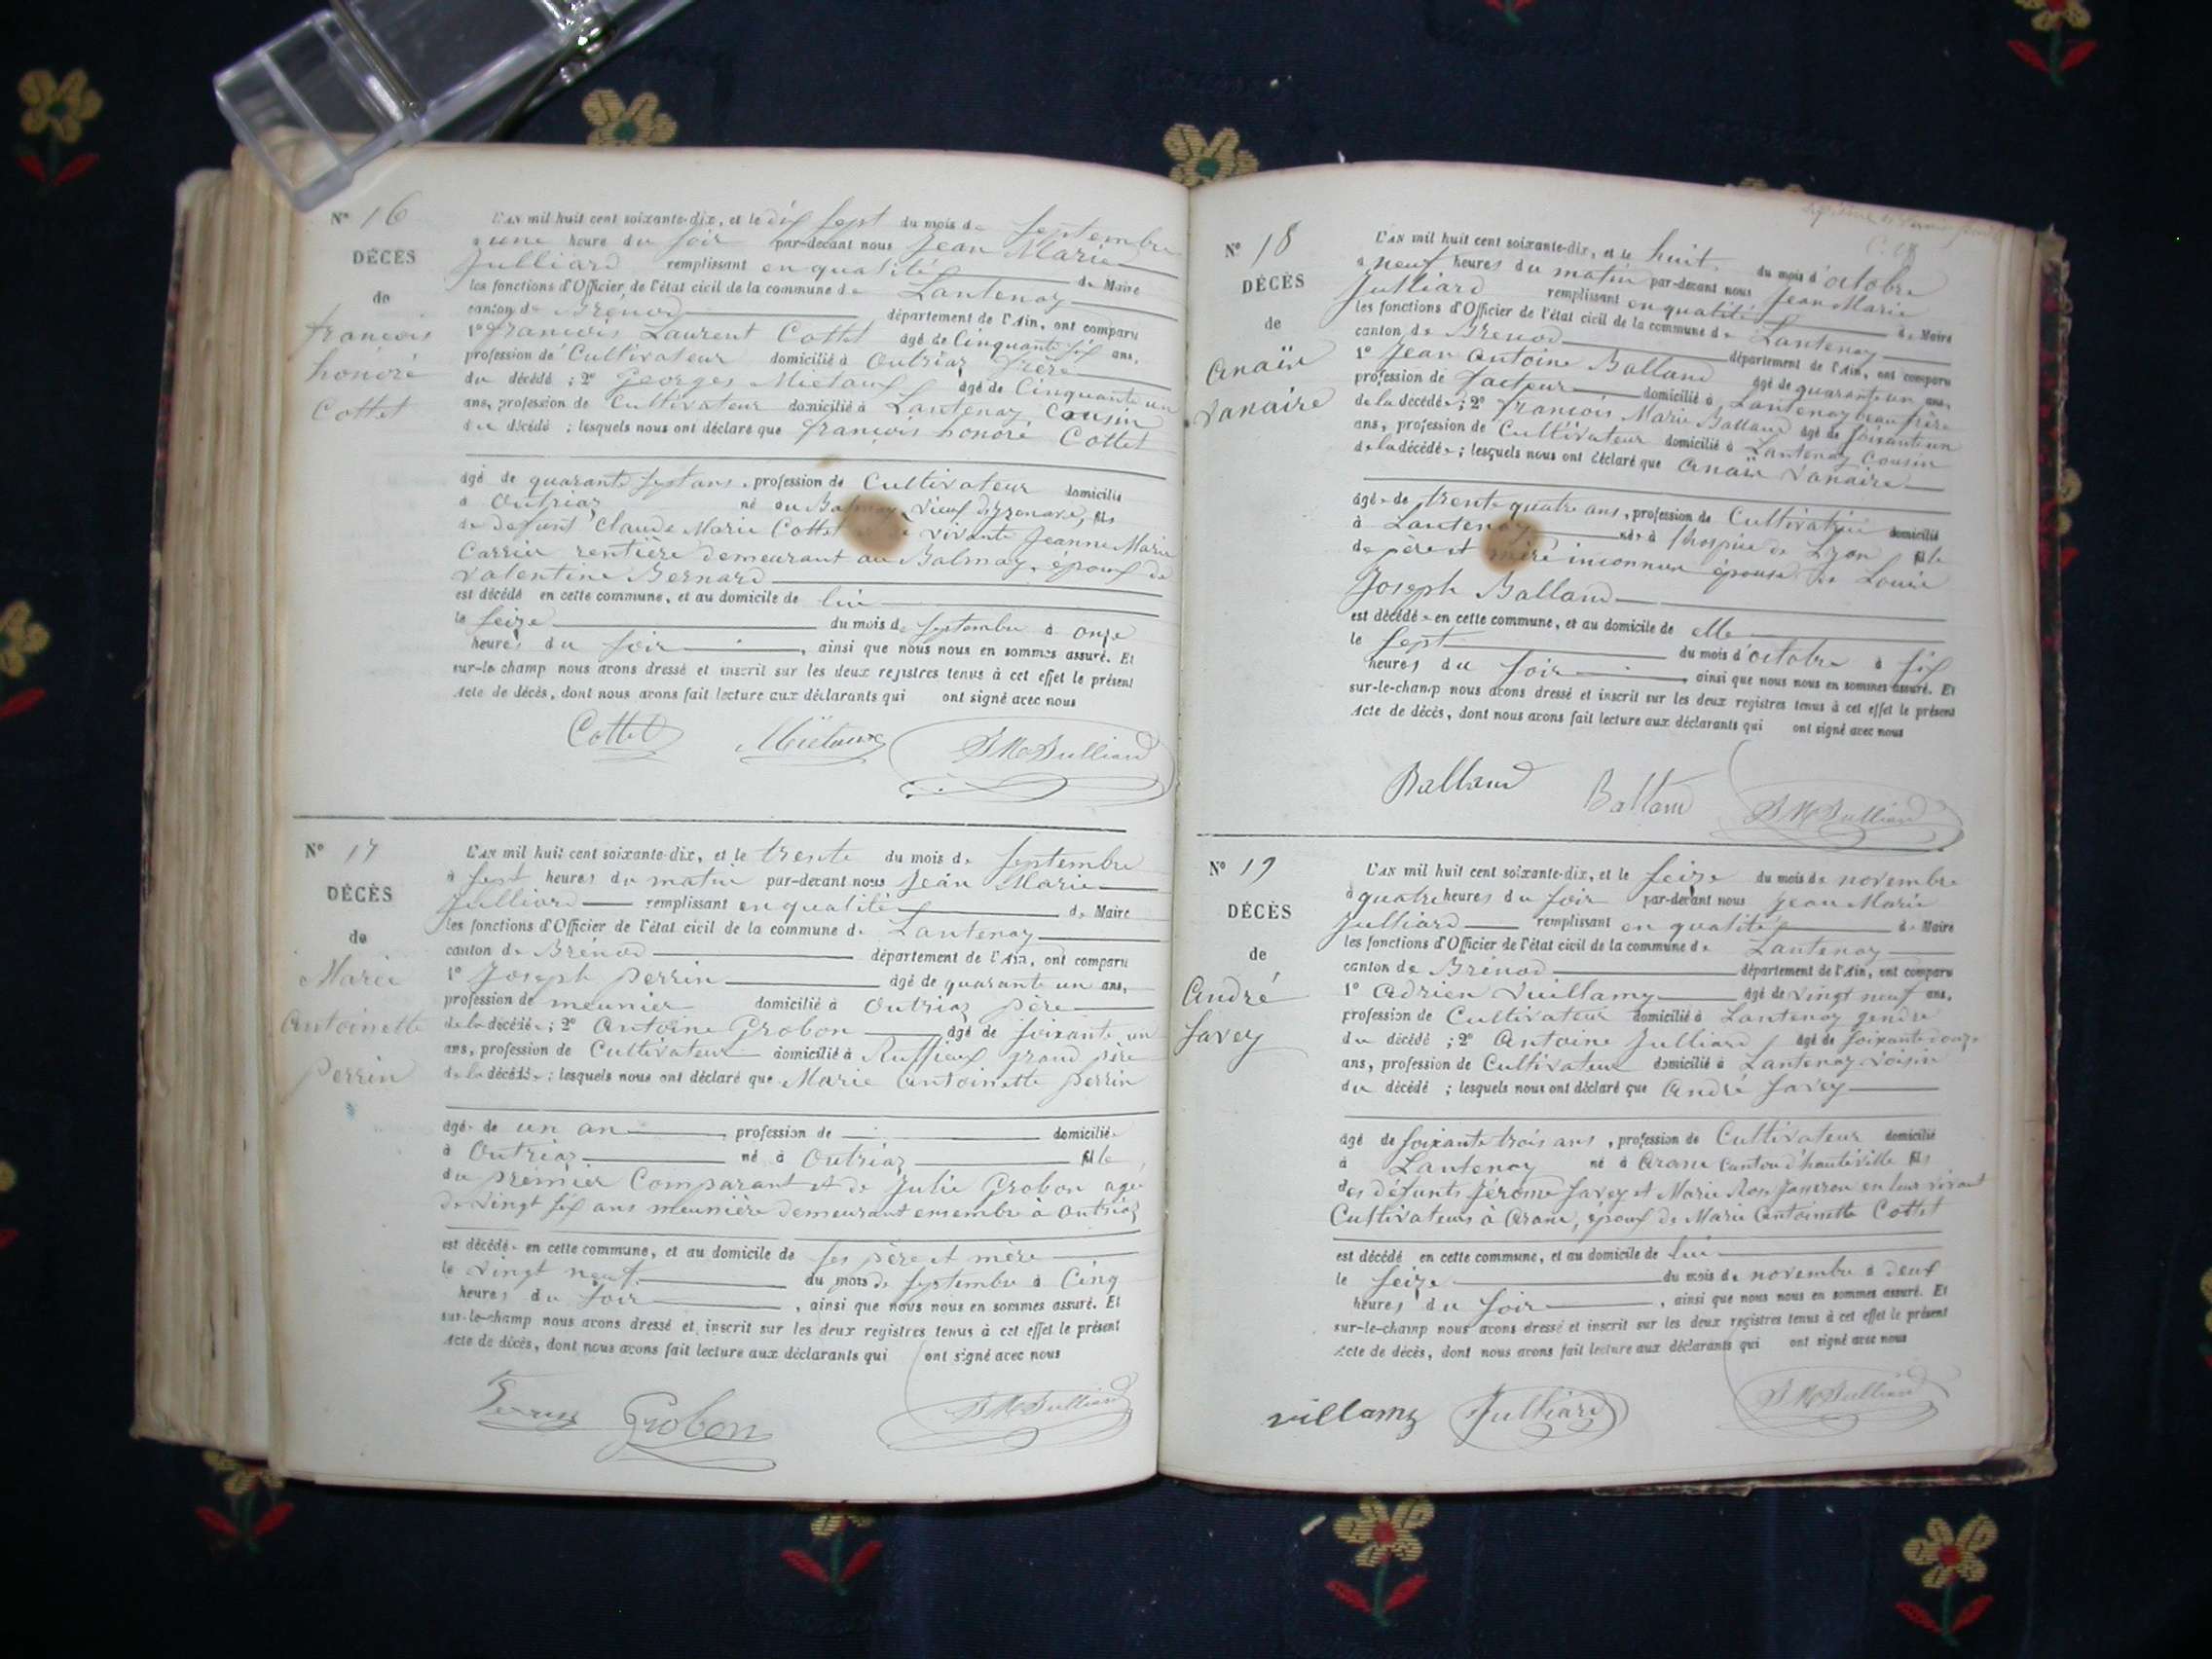 N° 16
DÉCÈS
de
françois
honoré
Cottet
L'AN mil huit cent soixante-dix, et le dix sept du mois de septembre
à une heure du soir par-devant nous Jean Marie
Julliard remplissant en qualité de Maire
les fonctions d'Officier de l'état civil de la commune de Lantenay
canton de Brénod département de l'Ain, ont comparu
1° françois Laurent Cottet âgé de Cinquante six ans,
profession de Cultivateur domicilié à Outriaz frère
du décédé ; 2° Georges Miétaux âgé de Cinquante un
ans, profession de Cultivateur domicilié à Lantenay Cousin
du décédé ; lesquels nous ont déclaré que françois honoré Cottet
âgé de quarante sept ans, profession de Cultivateur domicilié
à Outriaz né au Balmay, vieux d'izenave, fils
de defunt Claude Marie Cottet et de vivante Jeanne Marie
Carrier rentière demeurant au Balmay, époux de
Valentine Bernard
est décédé en cette commune, et au domicile de lui
le seize du mois de septembre à onze
heures du soir, ainsi que nous nous en sommes assuré. Et
sur-le-champ nous avons dressé et inscrit sur les deux registres tenus à cet effet le présent
Acte de décès, dont nous avons fait lecture aux déclarants qui ont signé avec nous
Cottet Miétaux JM Julliard
N° 17
DÉCÈS
de
Marie
antoinette
Perrin
L'AN mil huit cent soixante-dix, et le trente du mois de septembre
à sept heures du matin par-devant nous Jean Marie
Julliard remplissant en qualité de Maire
les fonctions d'Officier de l'état civil de la commune de Lantenay
canton de Brénod département de l'Ain, ont comparu
1° Joseph Perrin âgé de quarante un ans,
profession de meunier domicilié à Outriaz père
de la décédée ; 2° Antoine Grobon âgé de soixante un
ans, profession de Cultivateur domicilié à Ruffieux grand père
de la décédée ; lesquels nous ont déclaré que Marie antoinette Perrin
âgée de un an, profession de domiciliée
à Outriaz né à Outriaz fille
du premier Comparant et de Julie Grobon agée
de vingt six ans meunière demeurant ensemble à Outriaz
est décédée en cette commune, et au domicile de ses père et mère
le vingt neuf du mois de septembre à Cinq
heures du soir, ainsi que nous nous en sommes assuré. Et
sur-le-champ nous avons dressé et inscrit sur les deux registres tenus à cet effet le présent
Acte de décès, dont nous avons fait lecture aux déclarants qui ont signé avec nous
Perrin Grobon JM Julliard
C. 18
N° 18
DÉCÈS
de
Anaïs
Vanaire
L'AN mil huit cent soixante-dix, et le huit du mois d'octobre
à neuf heures du matin par-devant nous Jean Marie
Julliard remplissant en qualité de Maire
les fonctions d'Officier de l'état civil de la commune de Lantenay
canton de Brenod département de l'Ain, ont comparu
1° Jean Antoine Balland âgé de quarante un ans,
profession de facteur domicilié à Lantenay beau frère
de la décédée ; 2° françois Marie Balland âgé de soixante un
ans, profession de Cultivateur domicilié à Lantenay Cousin
de la décédée ; lesquels nous ont déclaré que Anaïs Vanaire
âgée de trente quatre ans, profession de Cultivatrice domicilié
à Lantenay née à l'hospice de Lyon fille
de père et mère inconnus épouse de Louis
Joseph Balland
est décédée en cette commune, et au domicile de elle
le sept du mois d'octobre à six
heures du soir, ainsi que nous nous en sommes assuré. Et
sur-le-champ nous avons dressé et inscrit sur les deux registres tenus à cet effet le présent
Acte de décès, dont nous avons fait lecture aux déclarants qui ont signé avec nous
Balland Balland JM Julliard
N° 19
DÉCÈS
de
André
Savey
L'AN mil huit cent soixante-dix, et le seize du mois de novembre
à quatre heures du soir par-devant nous Jean Marie
Julliard remplissant en qualité de Maire
les fonctions d'Officier de l'état civil de la commune de Lantenay
canton de Brénod département de l'Ain, ont comparu
1° Adrien Vuillamy âgé de vingt neuf ans,
profession de Cultivateur domicilié à Lantenay gendre
du décédé ; 2° Antoine Julliard âgé de soixante douze
ans, profession de Cultivateur domicilié à Lantenay voisin
du décédé ; lesquels nous ont déclaré que André Savey
âgé de soixante trois ans, profession de Cultivateur domicilié
à Lantenay né à Aranc Canton d'hauteville fils
des défunts Jérome Savey et Marie Rose Janeron en leur vivant
Cultivateurs à Aranc, époux de Marie Antoinette Cottet
est décédé en cette commune, et au domicile de lui
le seize du mois de novembre à deux
heures du soir, ainsi que nous nous en sommes assuré. Et
sur-le-champ nous avons dressé et inscrit sur les deux registres tenus à cet effet le présent
Acte de décès, dont nous avons fait lecture aux déclarants qui ont signé avec nous
villamy Julliard JM Julliard